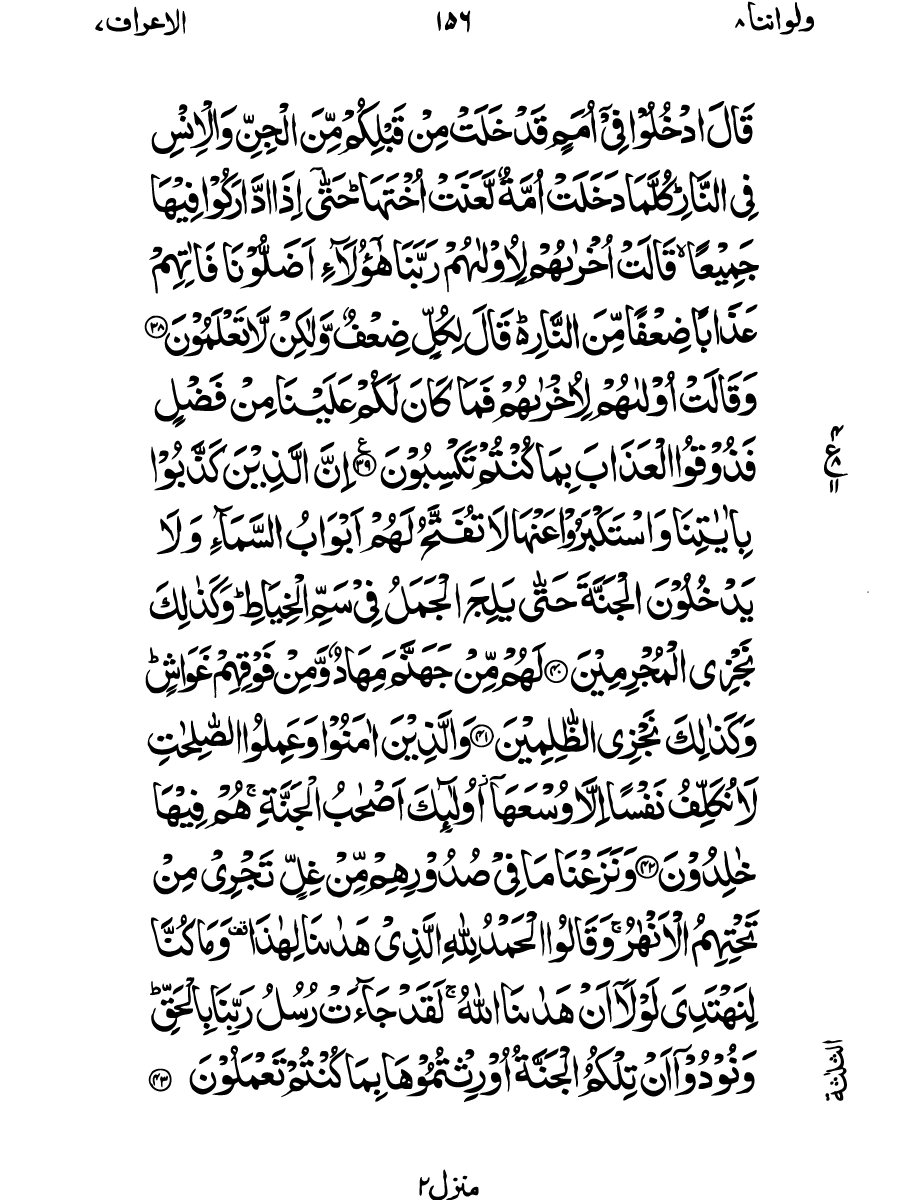 ولواننا ۸ ۱۵۶ الاعراف ۷
قَالَ ادْخُلُوْا فِیْۤ اُمَمٍ قَدْ خَلَتْ مِنْ قَبْلِكُمْ مِّنَ الْجِنِّ وَالْاِنْسِ
فِی النَّارِ ؕ كُلَّمَا دَخَلَتْ اُمَّةٌ لَّعَنَتْ اُخْتَهَا ؕ حَتّٰۤی اِذَا ادَّارَكُوْا فِیْهَا
جَمِیْعًا ۙ قَالَتْ اُخْرٰىهُمْ لِاُوْلٰىهُمْ رَبَّنَا هٰۤؤُلَآءِ اَضَلُّوْنَا فَاٰتِهِمْ
عَذَابًا ضِعْفًا مِّنَ النَّارِ ۬ؕ قَالَ لِكُلٍّ ضِعْفٌ وَّلٰكِنْ لَّا تَعْلَمُوْنَ ﴿۳۸﴾
وَقَالَتْ اُوْلٰىهُمْ لِاُخْرٰىهُمْ فَمَا كَانَ لَكُمْ عَلَیْنَا مِنْ فَضْلٍ
فَذُوْقُوا الْعَذَابَ بِمَا كُنْتُمْ تَكْسِبُوْنَ ﴿۳۹﴾ ع اِنَّ الَّذِیْنَ كَذَّبُوْا
بِاٰیٰتِنَا وَاسْتَكْبَرُوْا عَنْهَا لَا تُفَتَّحُ لَهُمْ اَبْوَابُ السَّمَآءِ وَلَا
یَدْخُلُوْنَ الْجَنَّةَ حَتّٰی یَلِجَ الْجَمَلُ فِیْ سَمِّ الْخِیَاطِ ؕ وَكَذٰلِكَ
نَجْزِی الْمُجْرِمِیْنَ ﴿۴۰﴾ لَهُمْ مِّنْ جَهَنَّمَ مِهَادٌ وَّمِنْ فَوْقِهِمْ غَوَاشٍ ؕ
وَكَذٰلِكَ نَجْزِی الظّٰلِمِیْنَ ﴿۴۱﴾ وَالَّذِیْنَ اٰمَنُوْا وَعَمِلُوا الصّٰلِحٰتِ
لَا نُكَلِّفُ نَفْسًا اِلَّا وُسْعَهَاۤ ۫ اُولٰٓىِٕكَ اَصْحٰبُ الْجَنَّةِ ۚ هُمْ فِیْهَا
خٰلِدُوْنَ ﴿۴۲﴾ وَنَزَعْنَا مَا فِیْ صُدُوْرِهِمْ مِّنْ غِلٍّ تَجْرِیْ مِنْ
تَحْتِهِمُ الْاَنْهٰرُ ۚ وَقَالُوا الْحَمْدُ لِلّٰهِ الَّذِیْ هَدٰىنَا لِهٰذَا ۫ وَمَا كُنَّا
لِنَهْتَدِیَ لَوْلَاۤ اَنْ هَدٰىنَا اللّٰهُ ۚ لَقَدْ جَآءَتْ رُسُلُ رَبِّنَا بِالْحَقِّ ؕ
وَنُوْدُوْۤا اَنْ تِلْكُمُ الْجَنَّةُ اُوْرِثْتُمُوْهَا بِمَا كُنْتُمْ تَعْمَلُوْنَ ﴿۴۳﴾
۴ ع ۸ ۱۱
الثلٰثة
منزل ۲